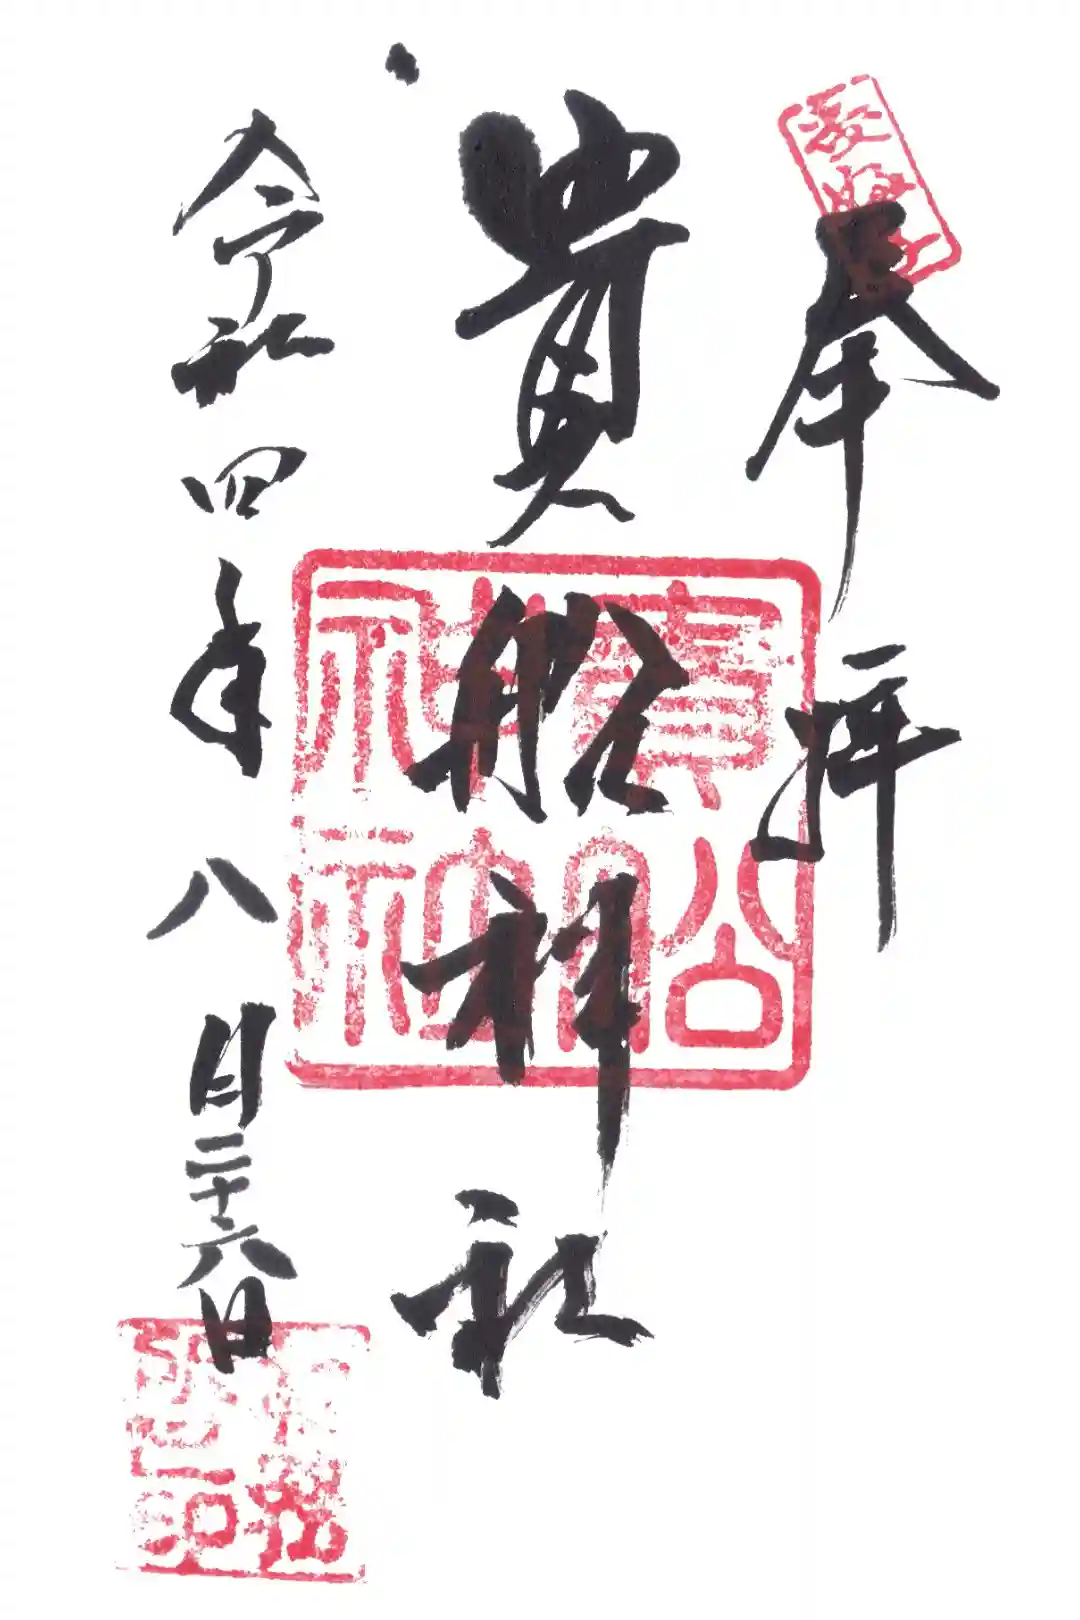 奉拝
貴船神社
貴船神社
令和四年八月二十六日